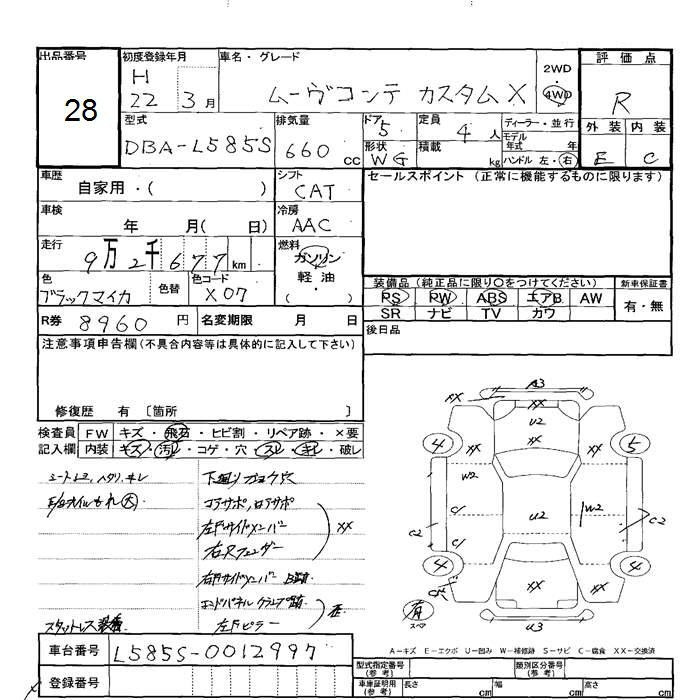 出品番号
28
初度登録年月
H
22 3月
車名・グレード
ムーヴコンテ カスタム X
2WD
・
4WD
評価点
R
外装 内装
E C
型式
DBA-L585S
排気量
660 cc
ドア
5
形状
WG
定員
4 人
積載
kg
ディーラー・並行
モデル年式 年
ハンドル 左・右
車歴
自家用・( )
シフト
CAT
車検
年 月( 日)
冷房
AAC
走行
9万2千677km
燃料
ガソリン
軽・油
( )
色
ブラックマイカ
色替
色コード
X07
R券 8960円
名変期限 月 日
セールスポイント (正常に機能するものに限ります)
装備品(純正品に限り○をつけてください)
PS PW ABS エアB AW
SR ナビ TV カワ
新車保証書
有・無
後日品
注意事項申告欄(不具合内容等は具体的に記入して下さい)
修復歴 有 〔箇所 〕
検査員 FW キズ・飛石・ヒビ割・リペア跡・×要
記入欄 内装 キズ・汚れ・コゲ・穴・スレ・キレ・破レ
コアサポ、ロアサポ
左Fサイドメンバー
右Fフェンダー
XX
右Fサイドメンバー
左Fピラー
スタットレス装着
車台番号 L585S-0012997
登録番号
A3
XX
U2
XX
4
XX
XX
5
W2
C1
U2
W2
C2
C2
C1
4
XX
XX
XX
4
有
スペア
U3
A-キズ E-エクボ U-凹み W-補修跡 S-サビ C-腐食 XX-交換済
型式指定番号
(参考)
類別区分番号
(参考)
車庫証明用
(参考)
長さ cm 幅 cm 高さ cm